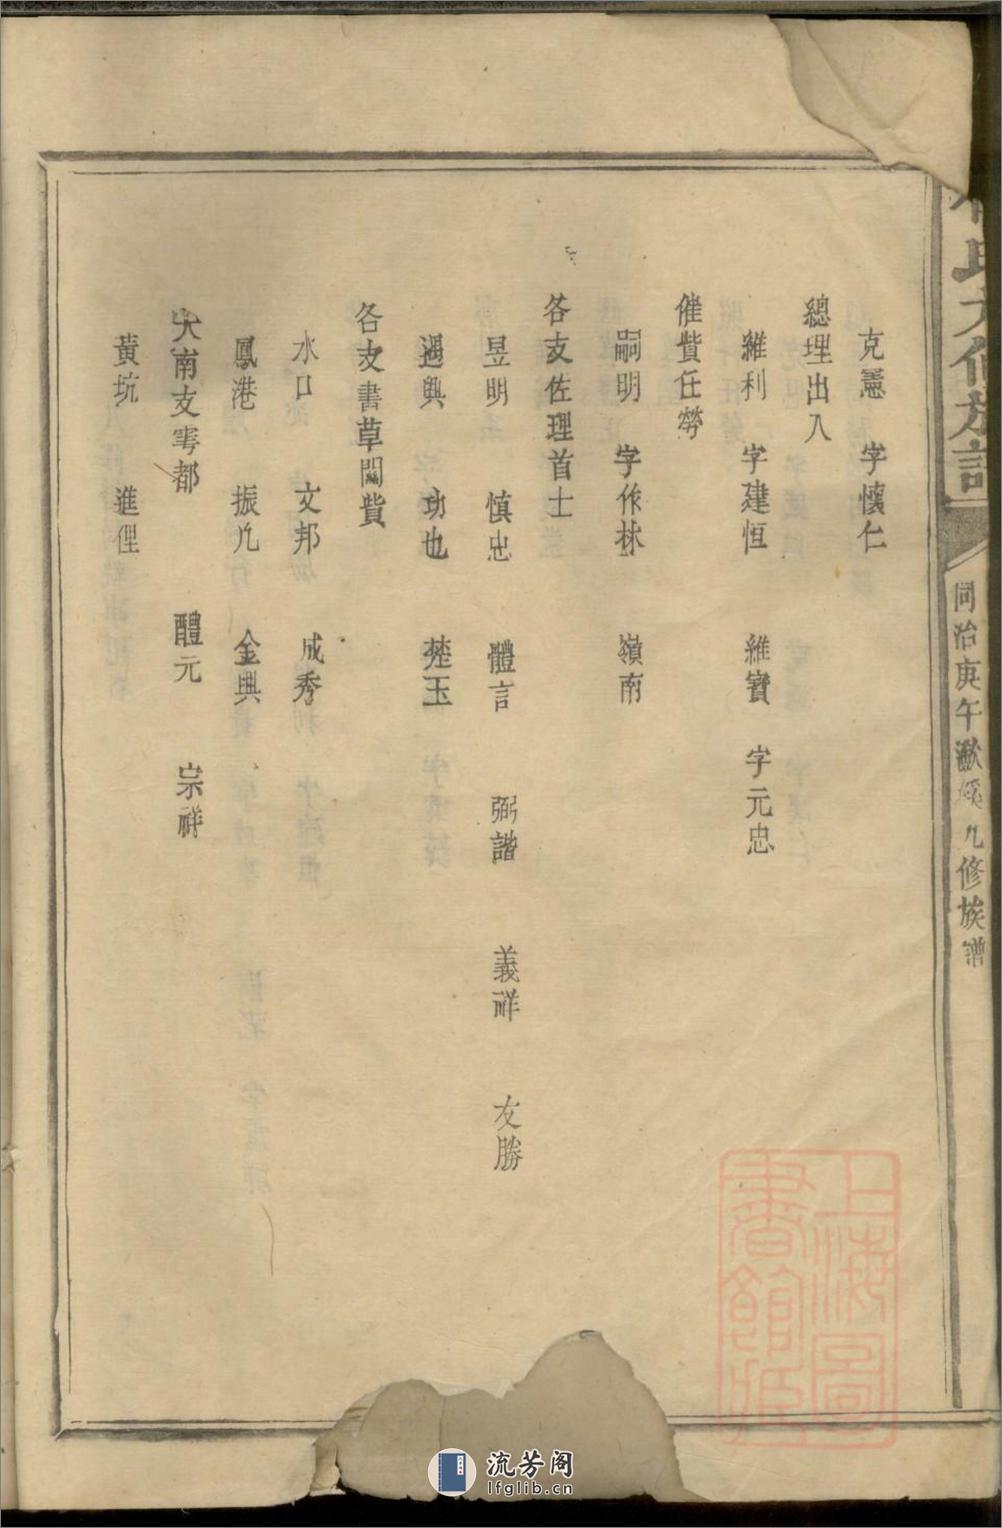 氏九修族譜
同治庚午瀫溪九修族譜
克憲 字懷仁
總理出入
維利 字建恒 維寶 字元忠
催貲任勞
嗣明 字作林 嶺南
各支佐理首士
昱明 慎忠 體言 弼諧 義祥 友勝
遇興 功也 楚玉
各支書草闔貲
水口 文邦 成秀
鳳港 振九 金興
大南支雩都 醴元 宗祥
黃坑 進俚
上海圖書館藏
流芳阁
lfglib.cn